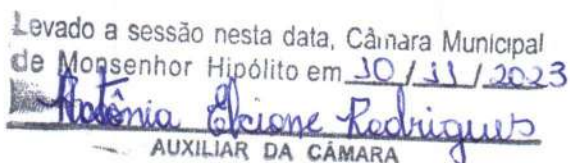 Levado a sessão nesta data, Câmara Municipal
de Monsenhor Hipólito em 10 / 11 / 2023
Antônia Elcione Rodrigues
AUXILIAR DA CÂMARA